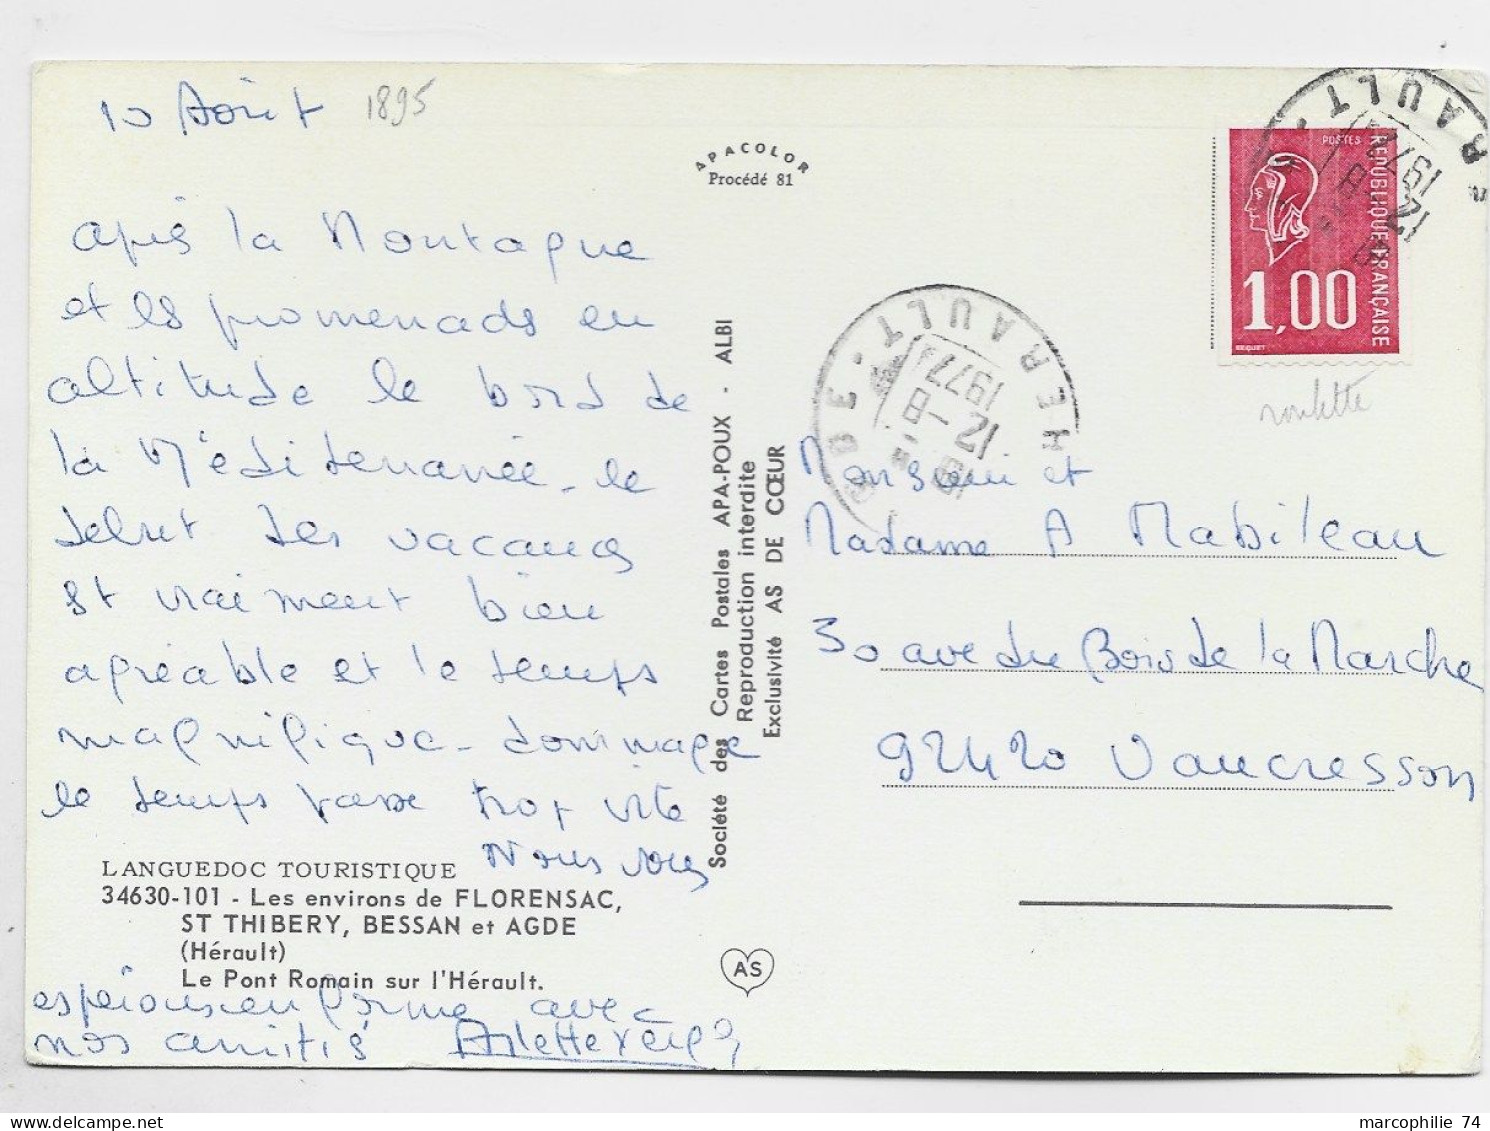 10 Août 1895
après la Montagne
et les promenads en
altitude le bord de
la Méditerranée - le
debut des vacances
est vraiment bien
agréable et le temps
magnifique - dommage
le temps passe trop vite
Nous vous
LANGUEDOC TOURISTIQUE
34630-101 - Les environs de FLORENSAC,
ST THIBERY, BESSAN et AGDE
(Hérault)
Le Pont Romain sur l'Hérault.
esperons en forme avec
nos amitiés Arlette
APACOLOR
Procédé 81
Société des Cartes Postales APA-POUX - ALBI
Reproduction interdite
Exclusivité AS DE CŒUR
AS
HERAULT
12 -8
1977
POSTES
REPUBLIQUE FRANÇAISE
1,00
BEQUET
HERAULT
12 -8
1977
roulette
Monsieur et
Madame A Mabileau
30 ave du Bois de la Marche
92420 Vaucresson
marcophilie 74